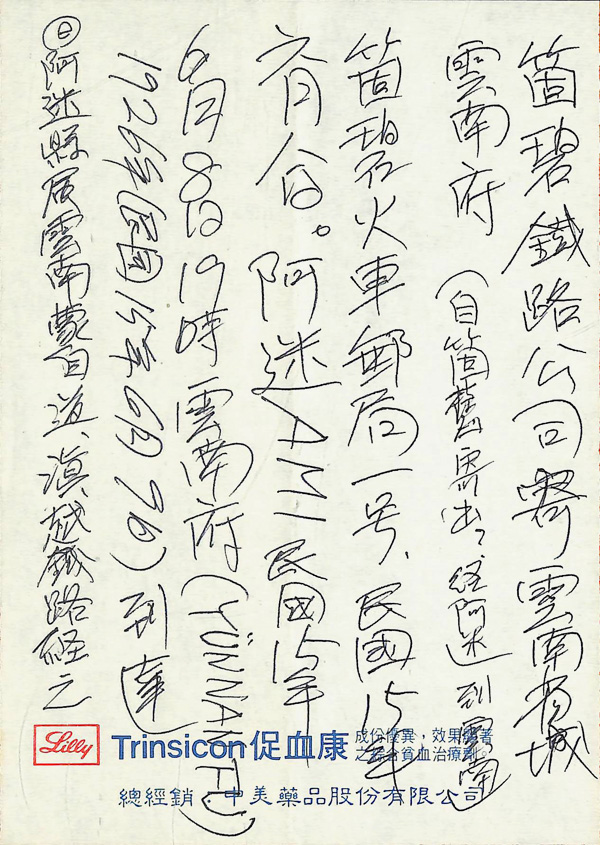 箇碧鐵路公司寄雲南省城
雲南府(自箇舊寄出、經阿迷到雲南)
箇碧石火車郵局一号、民國15年
六月八日。阿迷AMI民國15年
6月8日19時雲南府(YÜNNAN FU)
1926年(民國15年6月7日)到達
㊀阿迷縣居雲南蒙自道、滇越鐵路經之
Lilly
Trinsicon促血康
成份優異,效果顯著
之綜合貧血治療劑。
總經銷 中美藥品股份有限公司